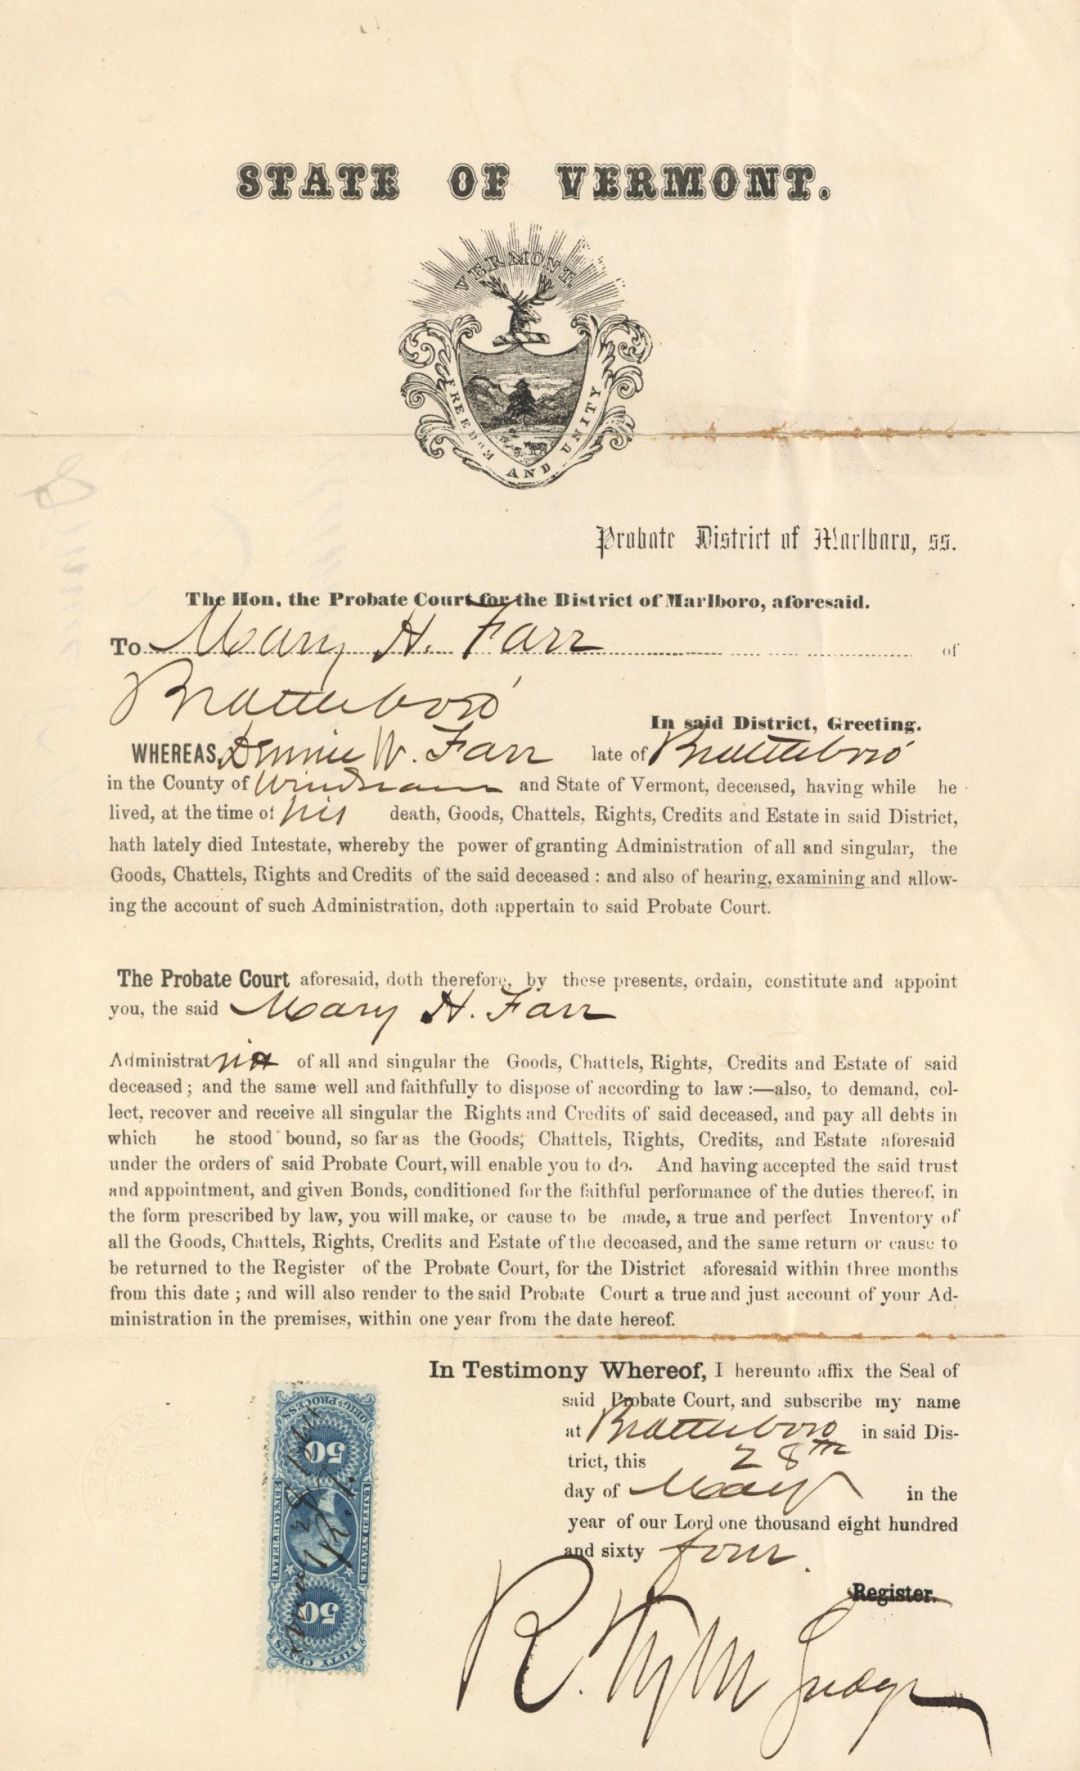 STATE OF VERMONT.
VERMONT.
FREEDOM AND UNITY
Probate District of Marlboro, ss.
The Hon. the Probate Court for the District of Marlboro, aforesaid.
To Mary H. Farr of
Brattleboro'
In said District, Greeting.
WHEREAS, Dennie W. Farr late of Brattleboro'
in the County of Windham and State of Vermont, deceased, having while he
lived, at the time of his death, Goods, Chattels, Rights, Credits and Estate in said District,
hath lately died Intestate, whereby the power of granting Administration of all and singular, the
Goods, Chattels, Rights and Credits of the said deceased : and also of hearing, examining and allow-
ing the account of such Administration, doth appertain to said Probate Court.
The Probate Court aforesaid, doth therefore, by these presents, ordain, constitute and appoint
you, the said Mary H. Farr
Administratrix of all and singular the Goods, Chattels, Rights, Credits and Estate of said
deceased ; and the same well and faithfully to dispose of according to law :—also, to demand, col-
lect, recover and receive all singular the Rights and Credits of said deceased, and pay all debts in
which he stood bound, so far as the Goods, Chattels, Rights, Credits, and Estate aforesaid
under the orders of said Probate Court, will enable you to do. And having accepted the said trust
and appointment, and given Bonds, conditioned for the faithful performance of the duties thereof, in
the form prescribed by law, you will make, or cause to be made, a true and perfect Inventory of
all the Goods, Chattels, Rights, Credits and Estate of the deceased, and the same return or cause to
be returned to the Register of the Probate Court, for the District aforesaid within three months
from this date ; and will also render to the said Probate Court a true and just account of your Ad-
ministration in the premises, within one year from the date hereof.
In Testimony Whereof, I hereunto affix the Seal of
said Probate Court, and subscribe my name
at Brattleboro in said Dis-
trict, this 28th
day of May in the
year of our Lord one thousand eight hundred
and sixty four.
Register.
R. Judge
ORIG. PROCESS
50
INTER. REVENUE
UNITED STATES
50
FIFTY CENTS
May 28